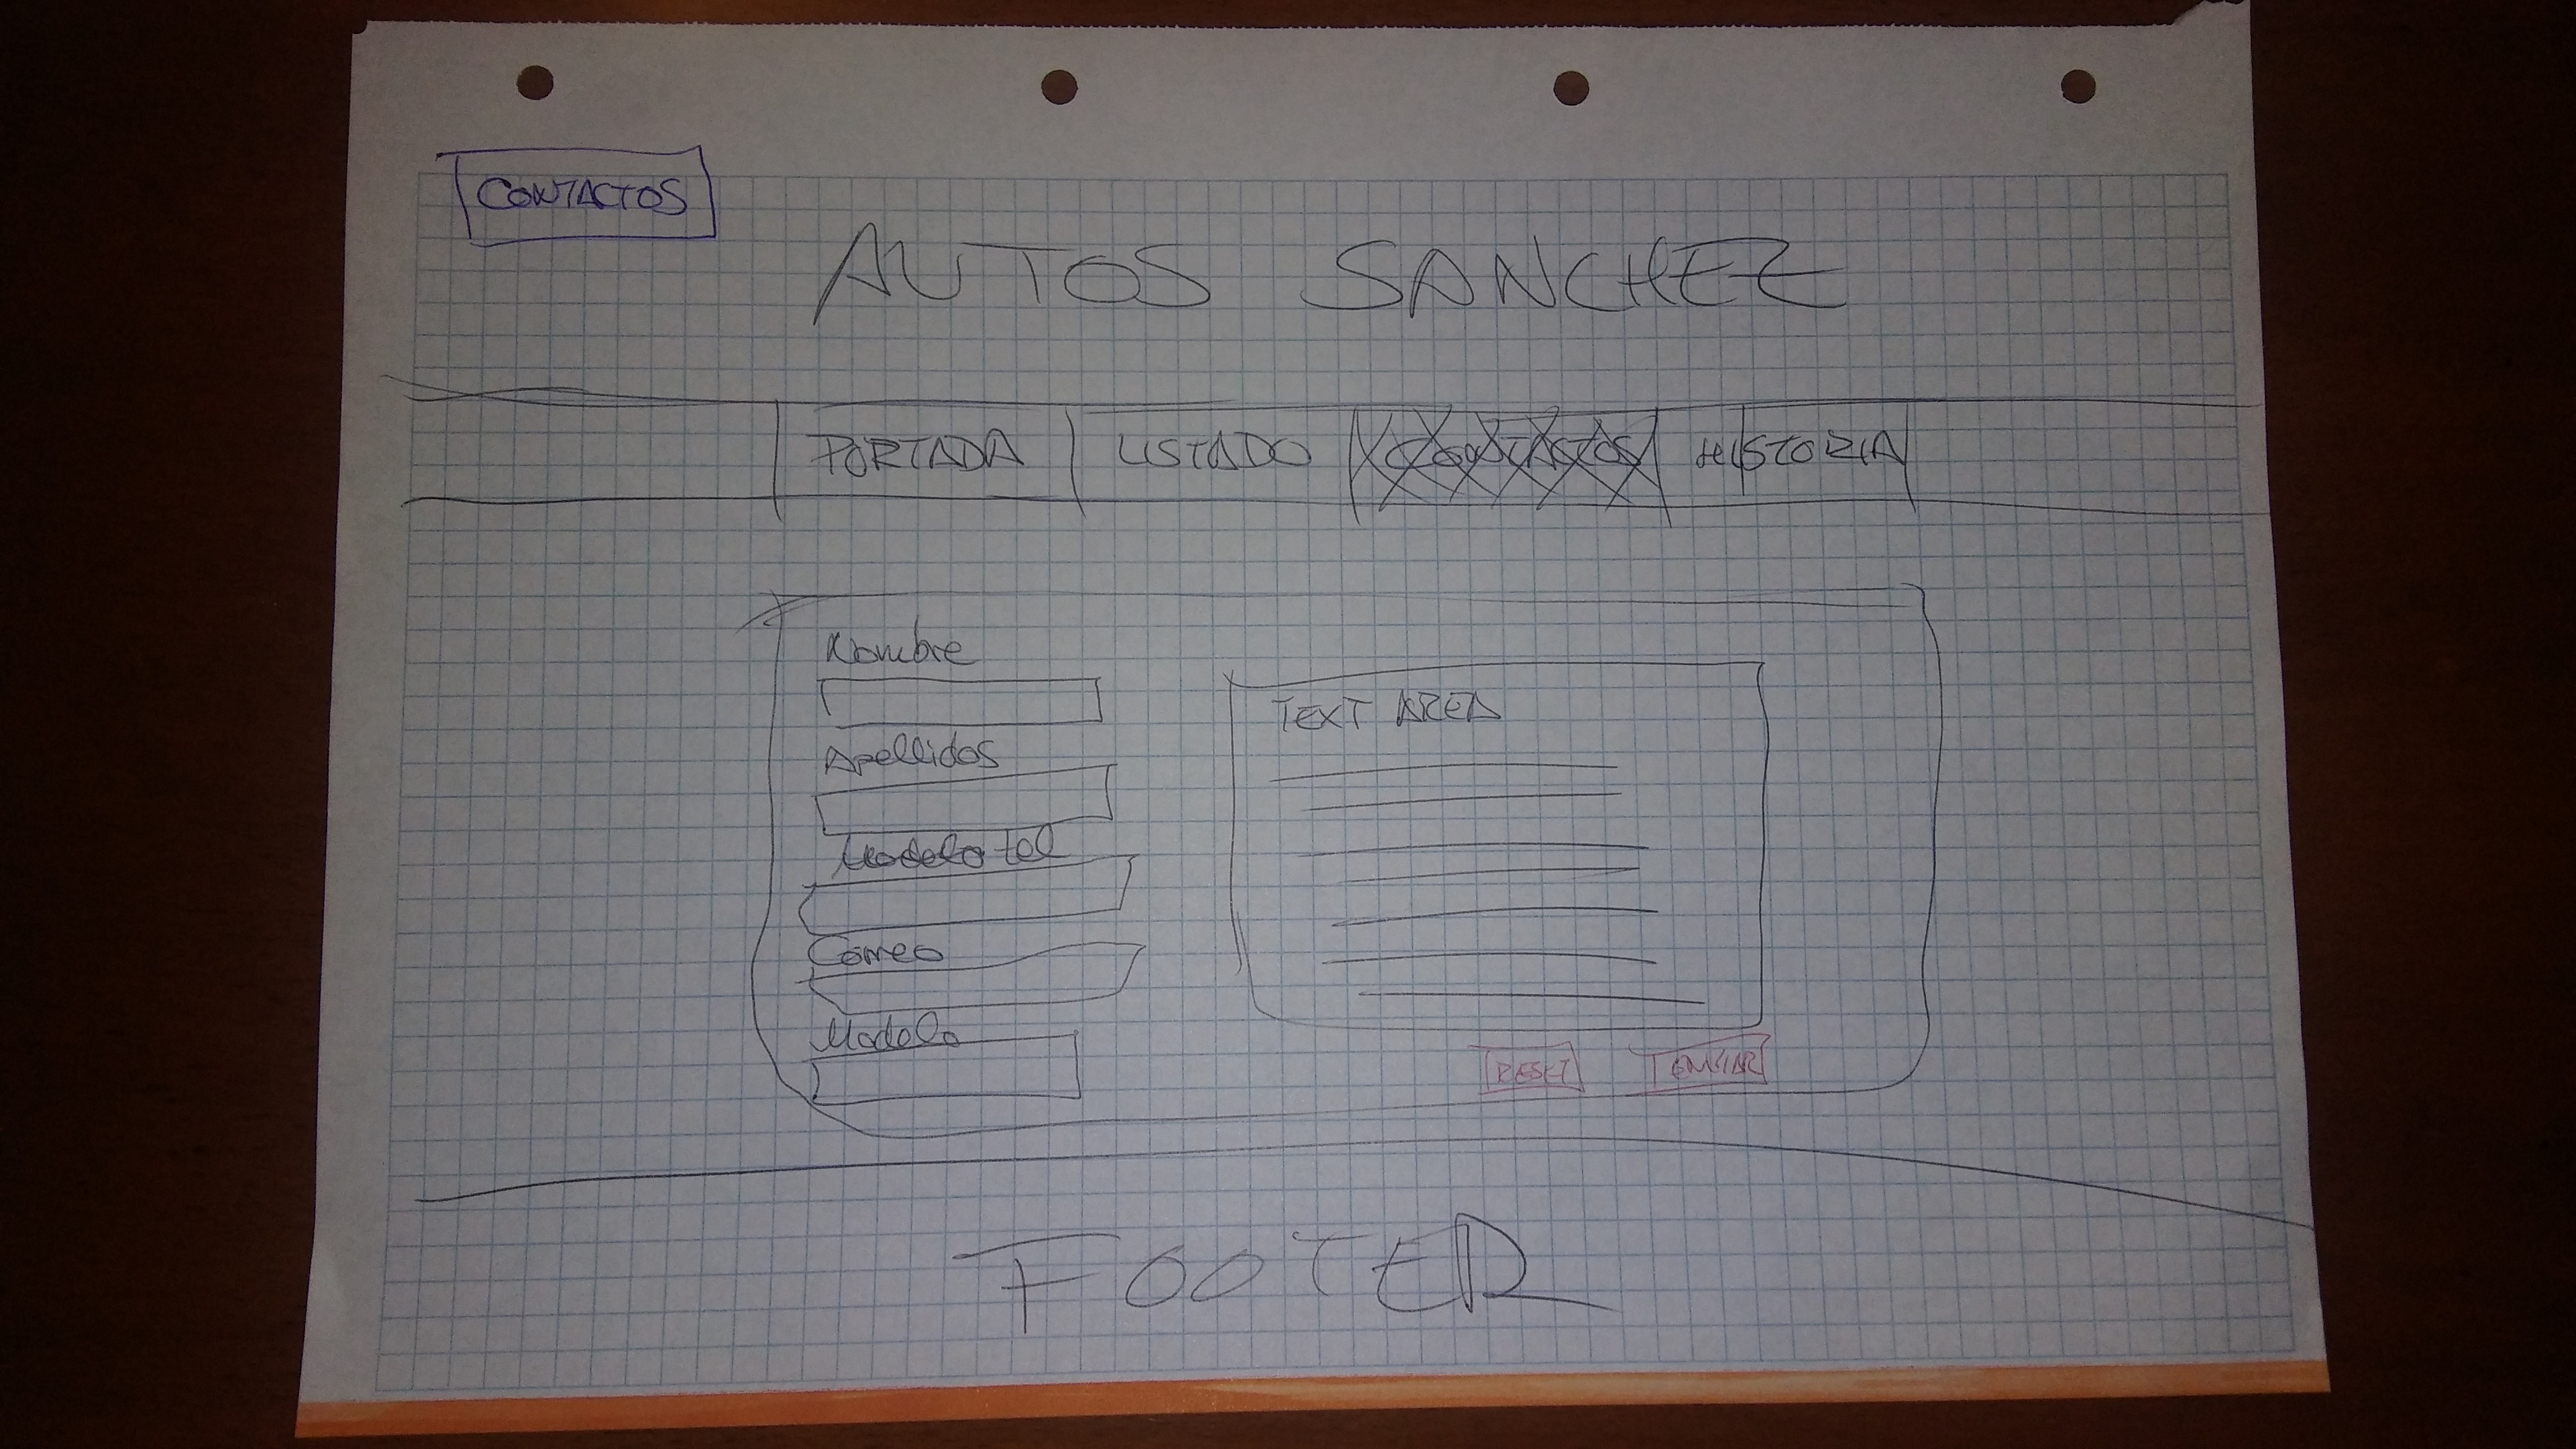 CONTACTOS
AUTOS SANCHEZ
PORTADA LISTADO CONTACTOS HISTORIA
Nombre
TEXT AREA
Apellidos
Modelo tel
Correo
Modelo
RESET ENVIAR
FOOTER